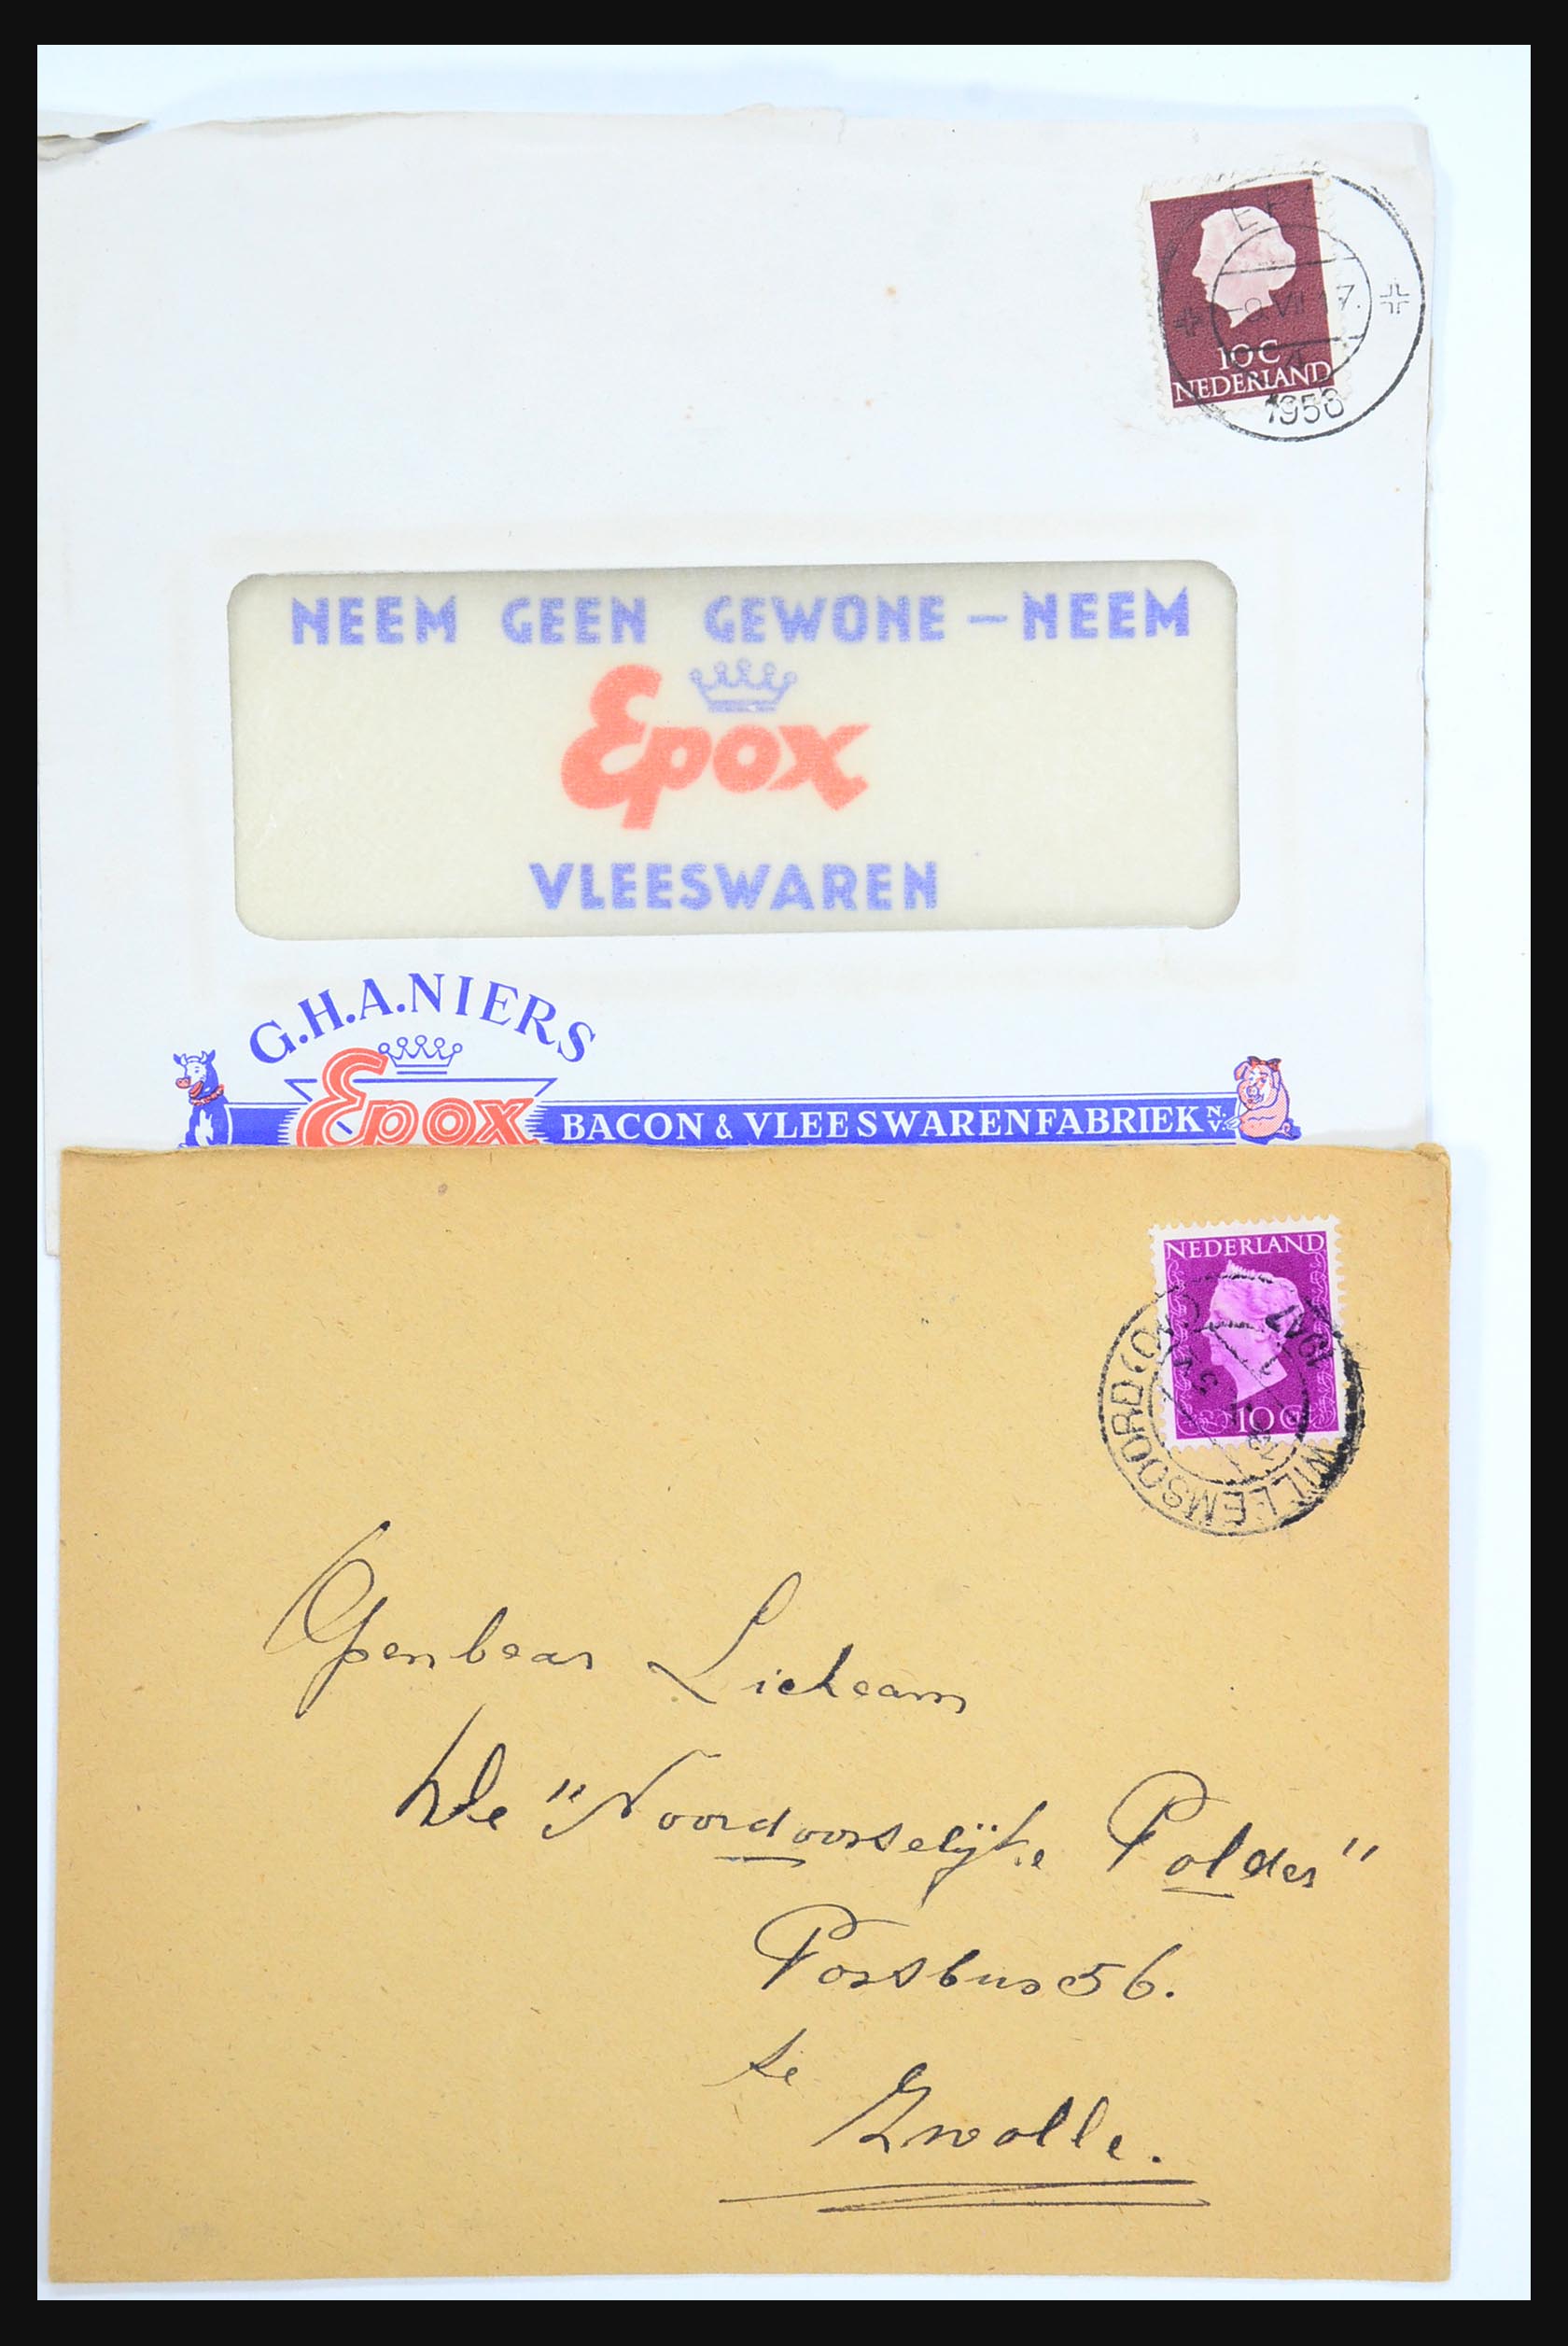 10C
NEDERLAND
1956
NEEM GEEN GEWONE — NEEM
Epox
VLEESWAREN
G.H.A. NIERS
Epox BACON & VLEESWARENFABRIEK N.V.
NEDERLAND
10 C
1947
WILLEMSOORD (OV.)
Openbaar Lichaam
De "Noordoosselijke Polder"
Postbus 56.
te
Zwolle.